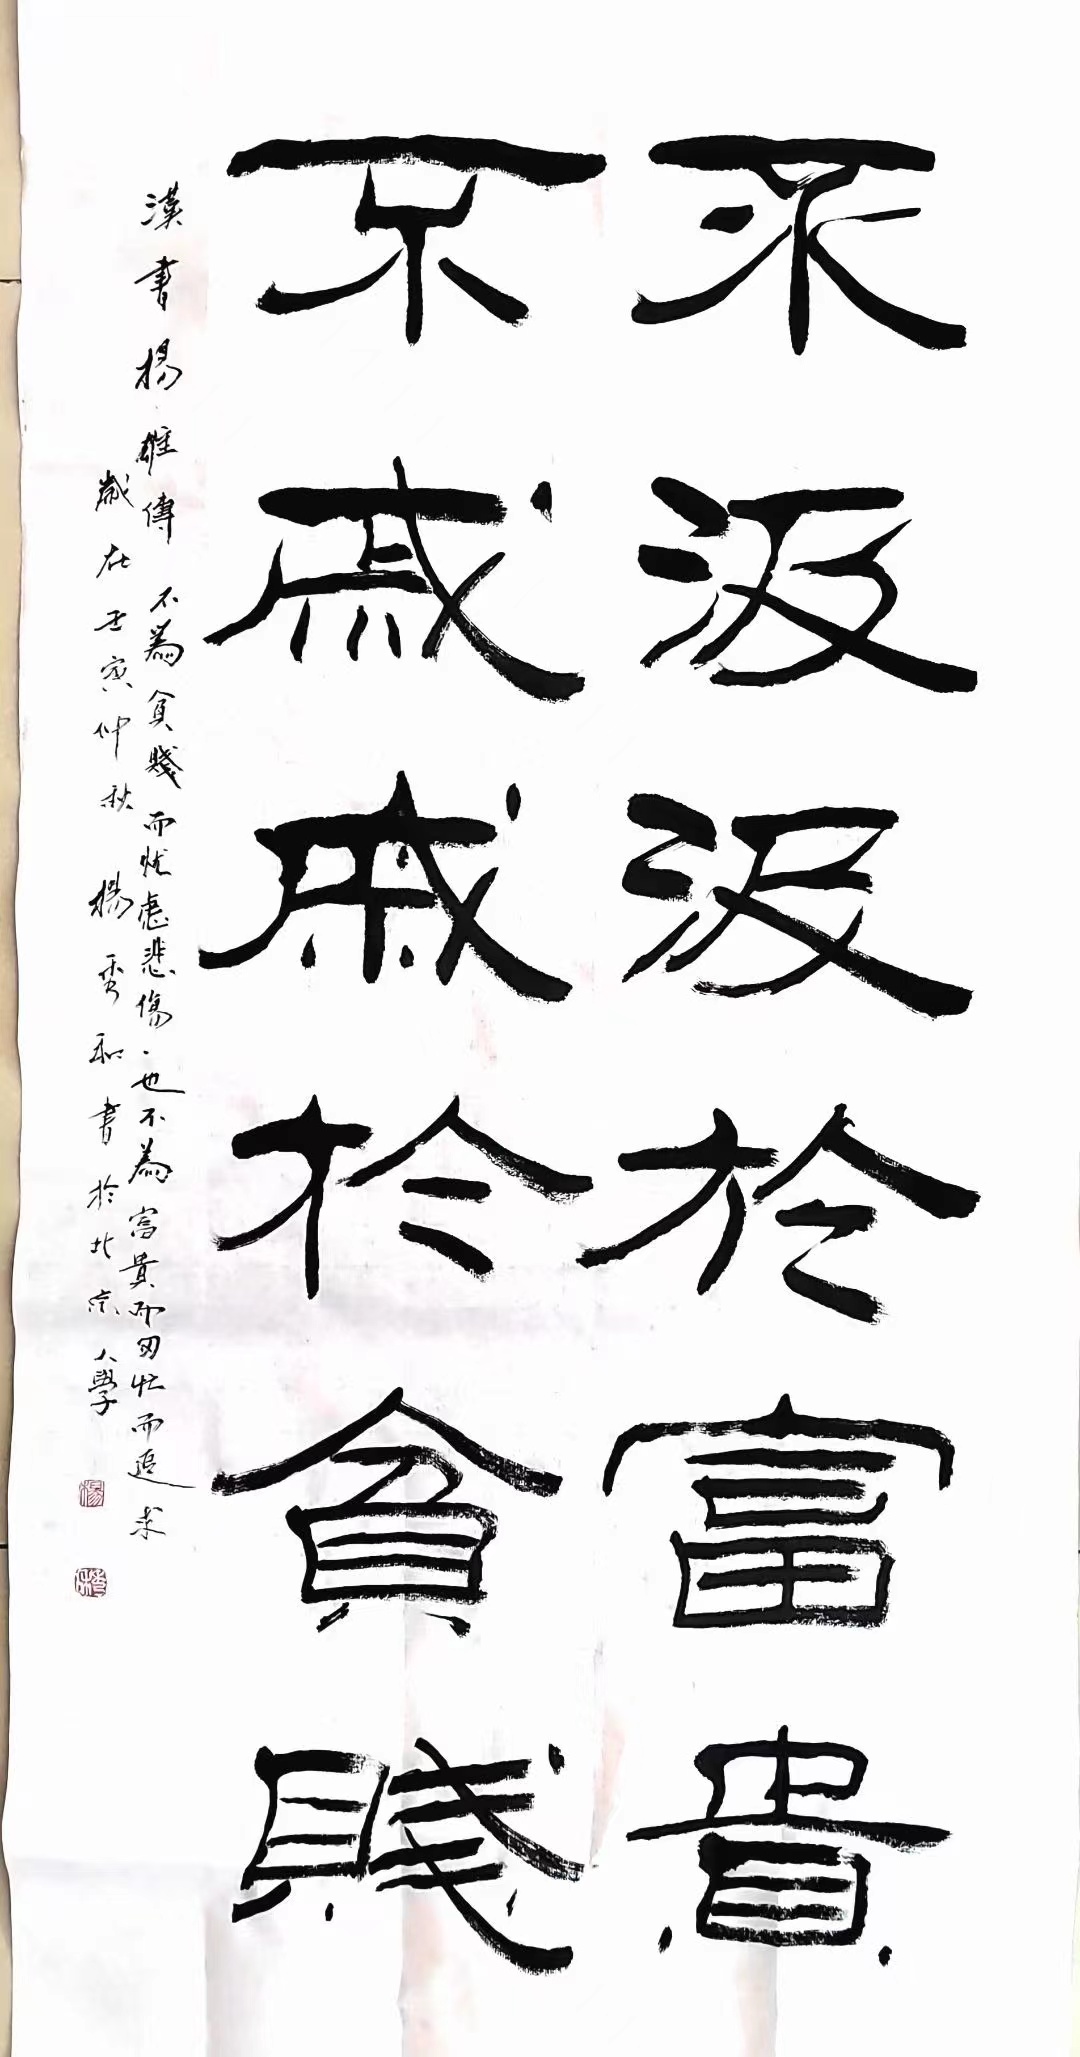 不汲汲於富貴
不戚戚於貧賤
漢書揚雄傳 不為貧賤而忧慮悲傷．也不為富貴而匆忙而追求
歲在壬寅仲秋 楊秀和書於北京大學
楊